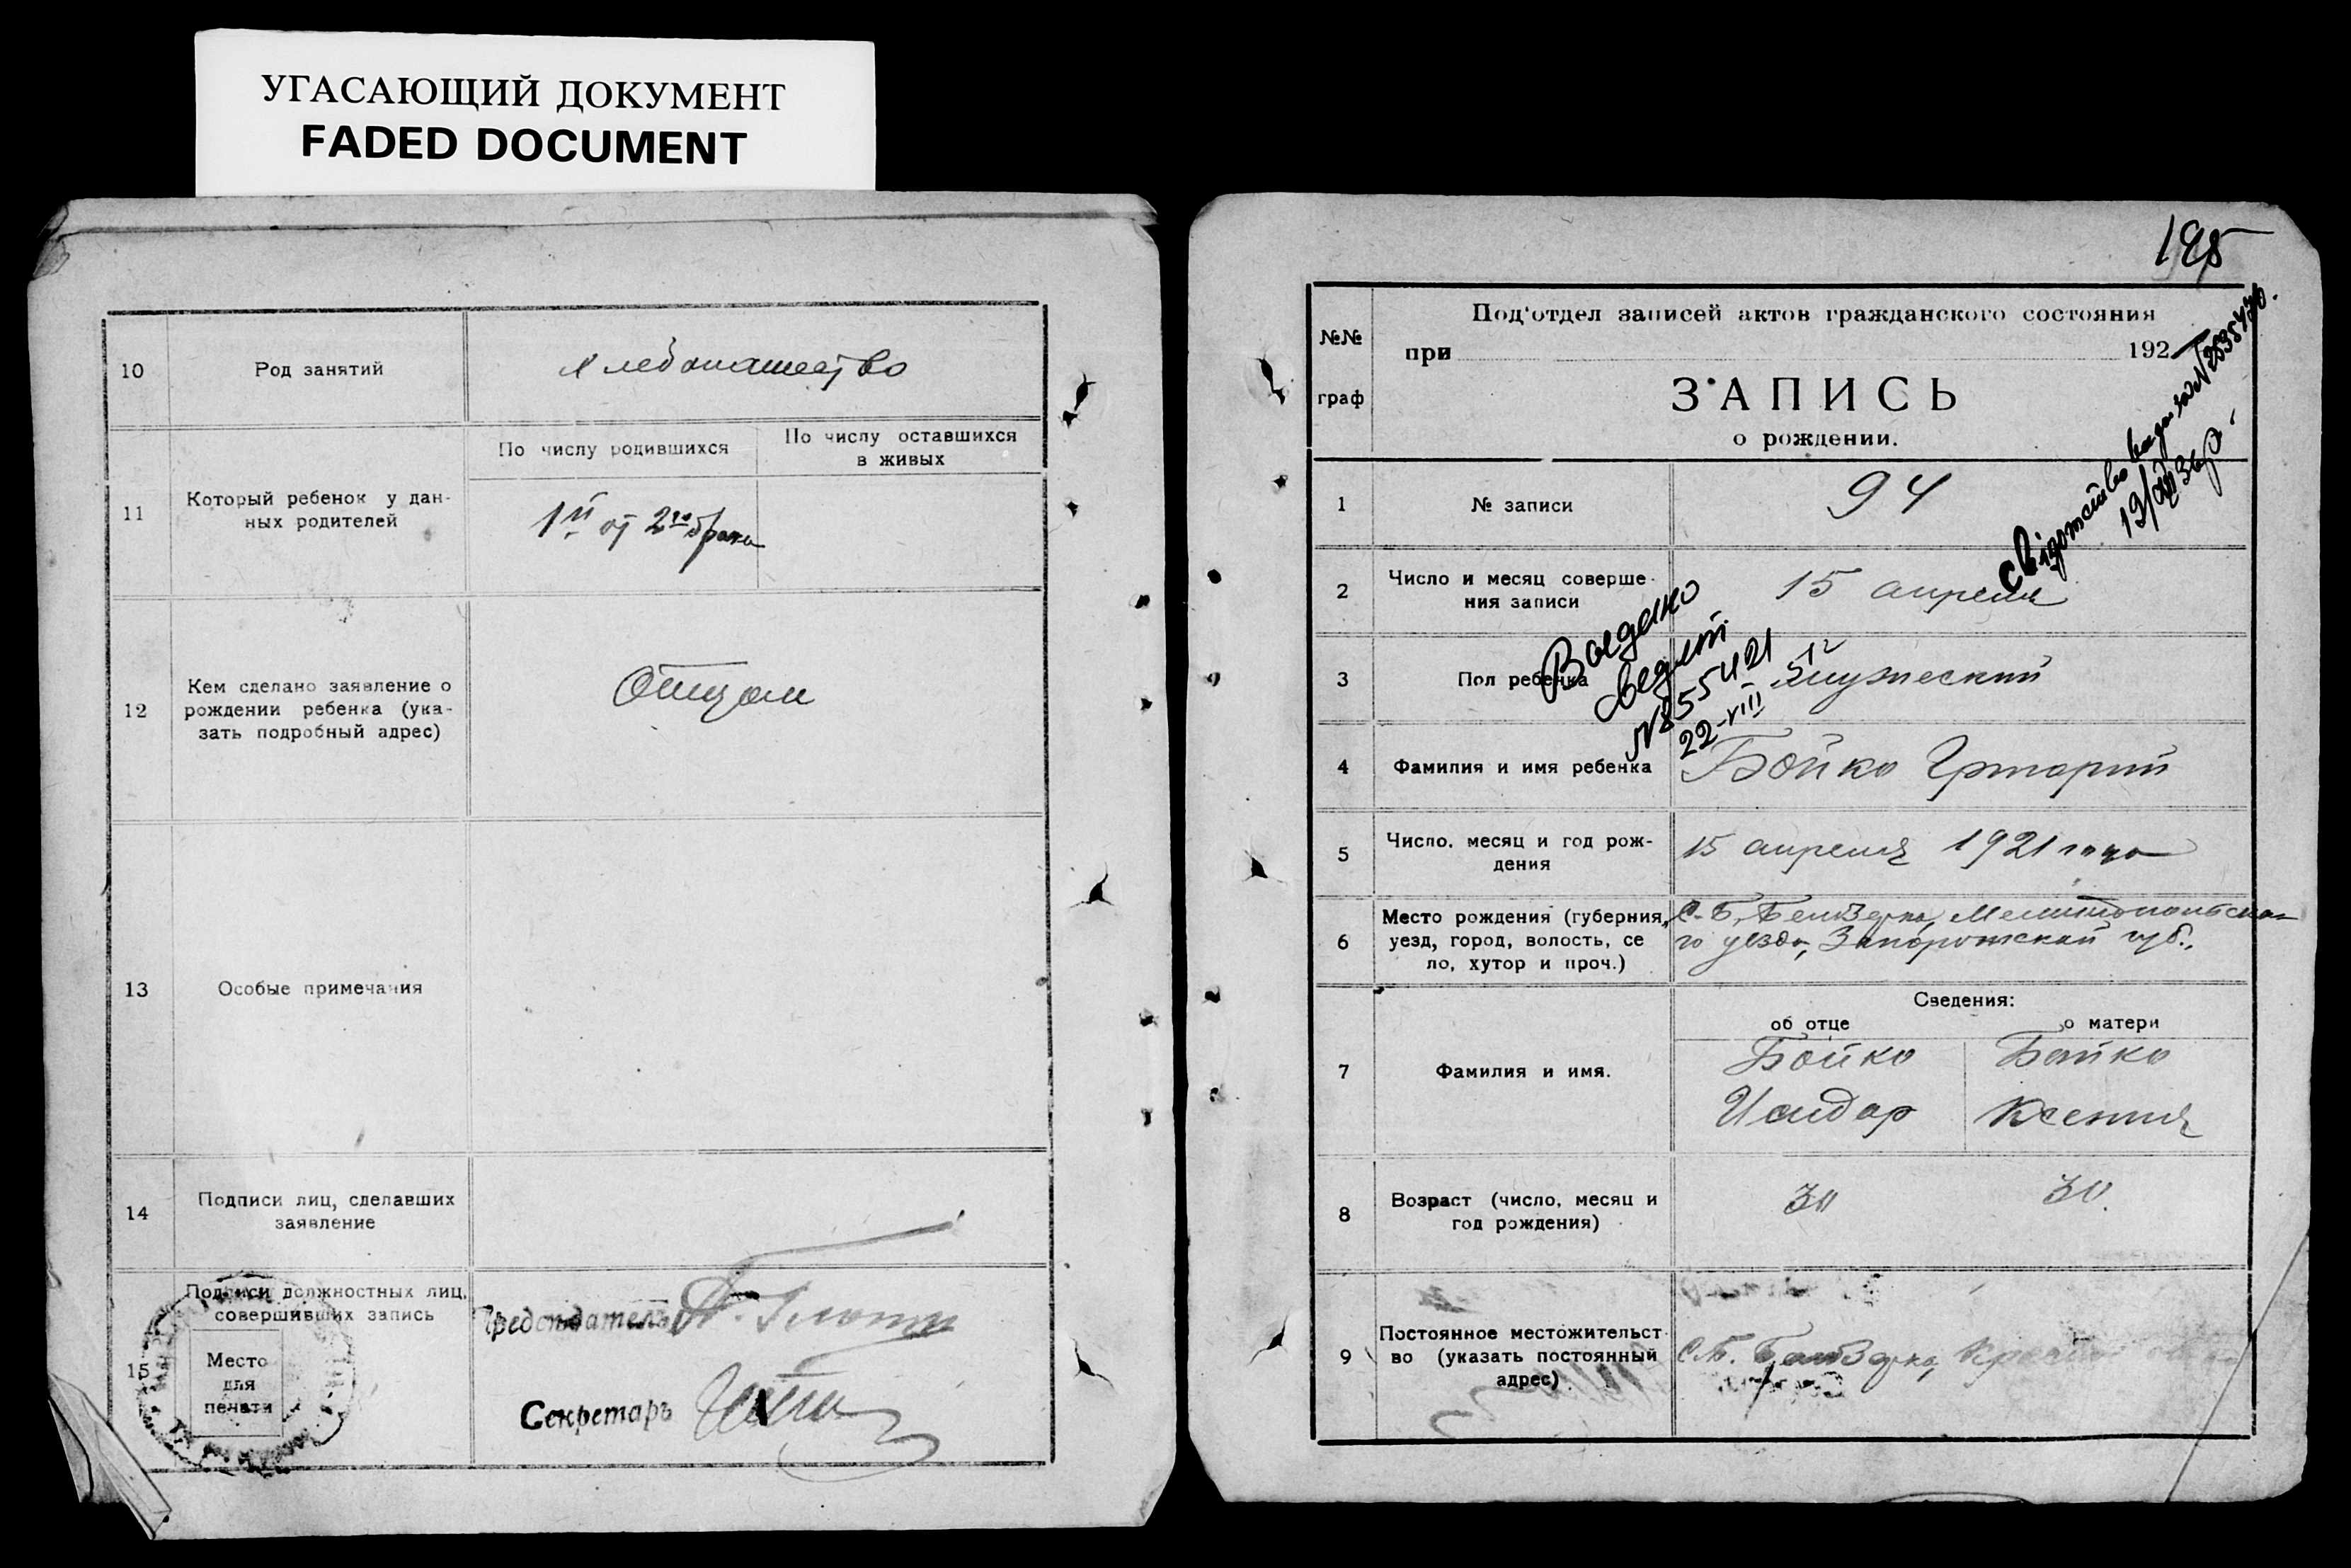 УГАСАЮЩИЙ ДОКУМЕНТ
FADED DOCUMENT
10
Род занятий
Хлебопашество
11
Который ребенок у дан-
ных родителей
По числу родившихся
По числу оставшихся
в живых
1й от 2го брака
12
Кем сделано заявление о
рождении ребенка (ука-
зать подробный адрес)
Отцом
13
Особые примечания
14
Подписи лиц, сделавших
заявление
15
Подписи должностных лиц,
совершивших запись
Место
для
печати
Председатель
Секретарь
№№
граф
Под'отдел записей актов гражданского состояния
при 192
ЗАПИСЬ
о рождении.
1
№ записи
94
2
Число и месяц соверше-
ния записи
15 апреля
3
Пол ребенка
мужеский
4
Фамилия и имя ребенка
Бойко Григорий
5
Число, месяц и год рож-
дения
15 апреля 1921 года
6
Место рождения (губерния,
уезд, город, волость, се
ло, хутор и проч.)
С. Б. Белозерка, Мелитопольско-
го уезда, Запорожской губ.,
Сведения:
об отце
о матери
7
Фамилия и имя.
Бойко
Исидор
Бойко
Ксения
8
Возраст (число, месяц и
год рождения)
30
30.
9
Постоянное местожительст
во (указать постоянный
адрес)
С. Б. Белозерка,
Выдано
свидет.
№855421
22-VIII
свідотство видано